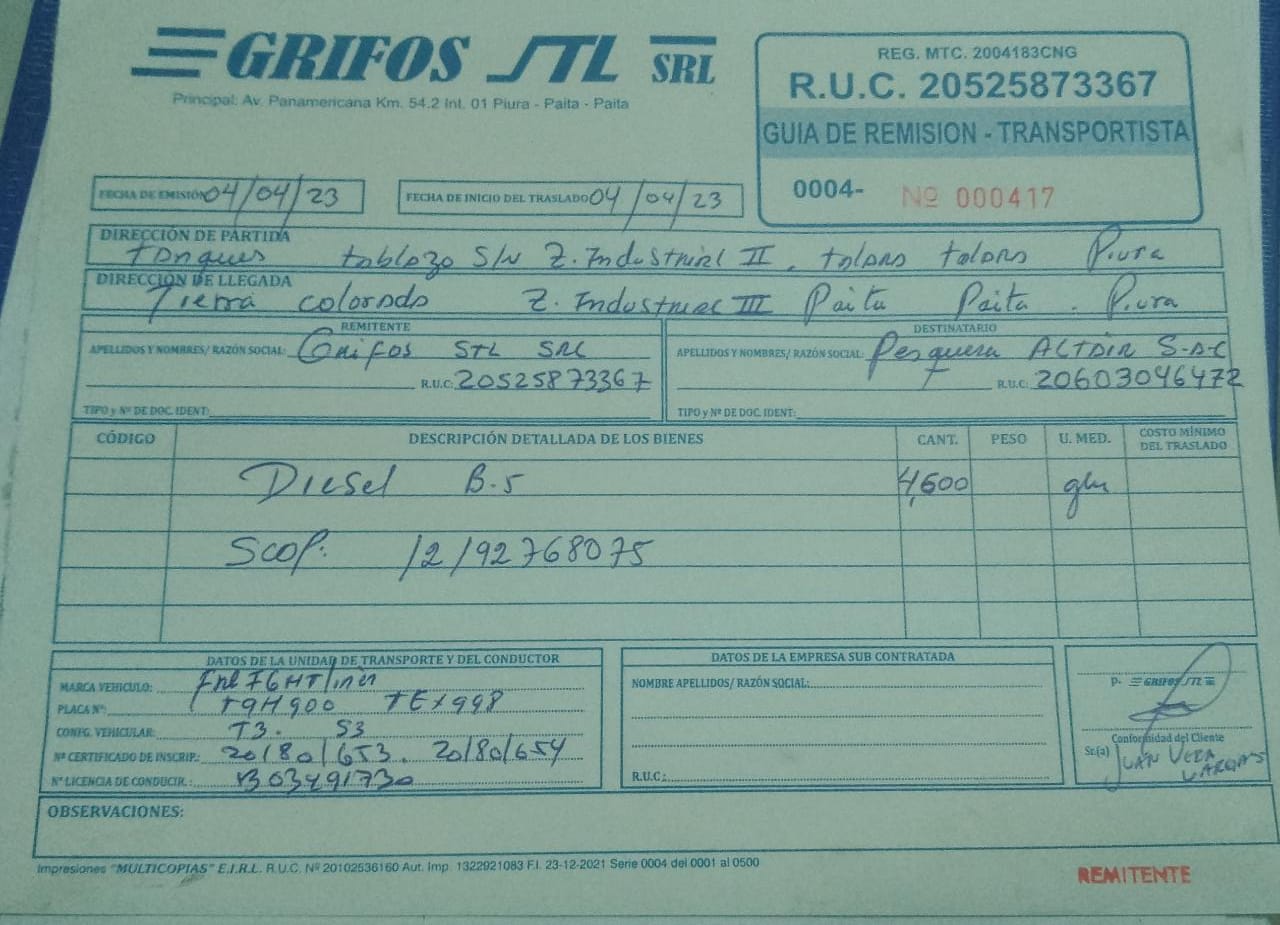 GRIFOS STL SRL
Principal: Av. Panamericana Km. 54.2 Int. 01 Piura - Paita - Paita
REG. MTC. 2004183CNG
R.U.C. 20525873367
GUIA DE REMISION - TRANSPORTISTA
0004- Nº 000417
FECHA DE EMISIÓN 04/04/23
FECHA DE INICIO DEL TRASLADO 04/04/23
DIRECCIÓN DE PARTIDA
Tanques tablazo S/N Z. Industrial II. talara talara Piura
DIRECCIÓN DE LLEGADA
Tierra colorada Z. Industrial III Paita Paita . Piura
REMITENTE
APELLIDOS Y NOMBRES/ RAZÓN SOCIAL: Grifos STL SRL
R.U.C: 20525873367
TIPO y Nº DE DOC. IDENT:
DESTINATARIO
APELLIDOS Y NOMBRES/ RAZÓN SOCIAL: Pesquera ALTAIR S-A-C
R.U.C: 20603046472
TIPO y Nº DE DOC. IDENT:
CÓDIGO DESCRIPCIÓN DETALLADA DE LOS BIENES CANT. PESO U. MED. COSTO MÍNIMO DEL TRASLADO
Diesel B-5 4,600 gln
Scop: 12192768075
DATOS DE LA UNIDAD DE TRANSPORTE Y DEL CONDUCTOR
MARCA VEHICULO: FREIGHTliner
PLACA Nº: T9H900 TEX998
CONFG. VEHICULAR: T3. S3
Nº CERTIFICADO DE INSCRIP.: 201801653. 201801654
Nº LICENCIA DE CONDUCIR.: B03491730
DATOS DE LA EMPRESA SUB CONTRATADA
NOMBRE APELLIDOS/ RAZÓN SOCIAL:
R.U.C:
p. GRIFOS STL
Conformidad del Cliente
Sr.(a) JUAN VERA VARGAS
OBSERVACIONES:
Impresiones "MULTICOPIAS" E.I.R.L. R.U.C. Nº 20102536160 Aut. Imp. 1322921083 F.I. 23-12-2021 Serie 0004 del 0001 al 0500
REMITENTE